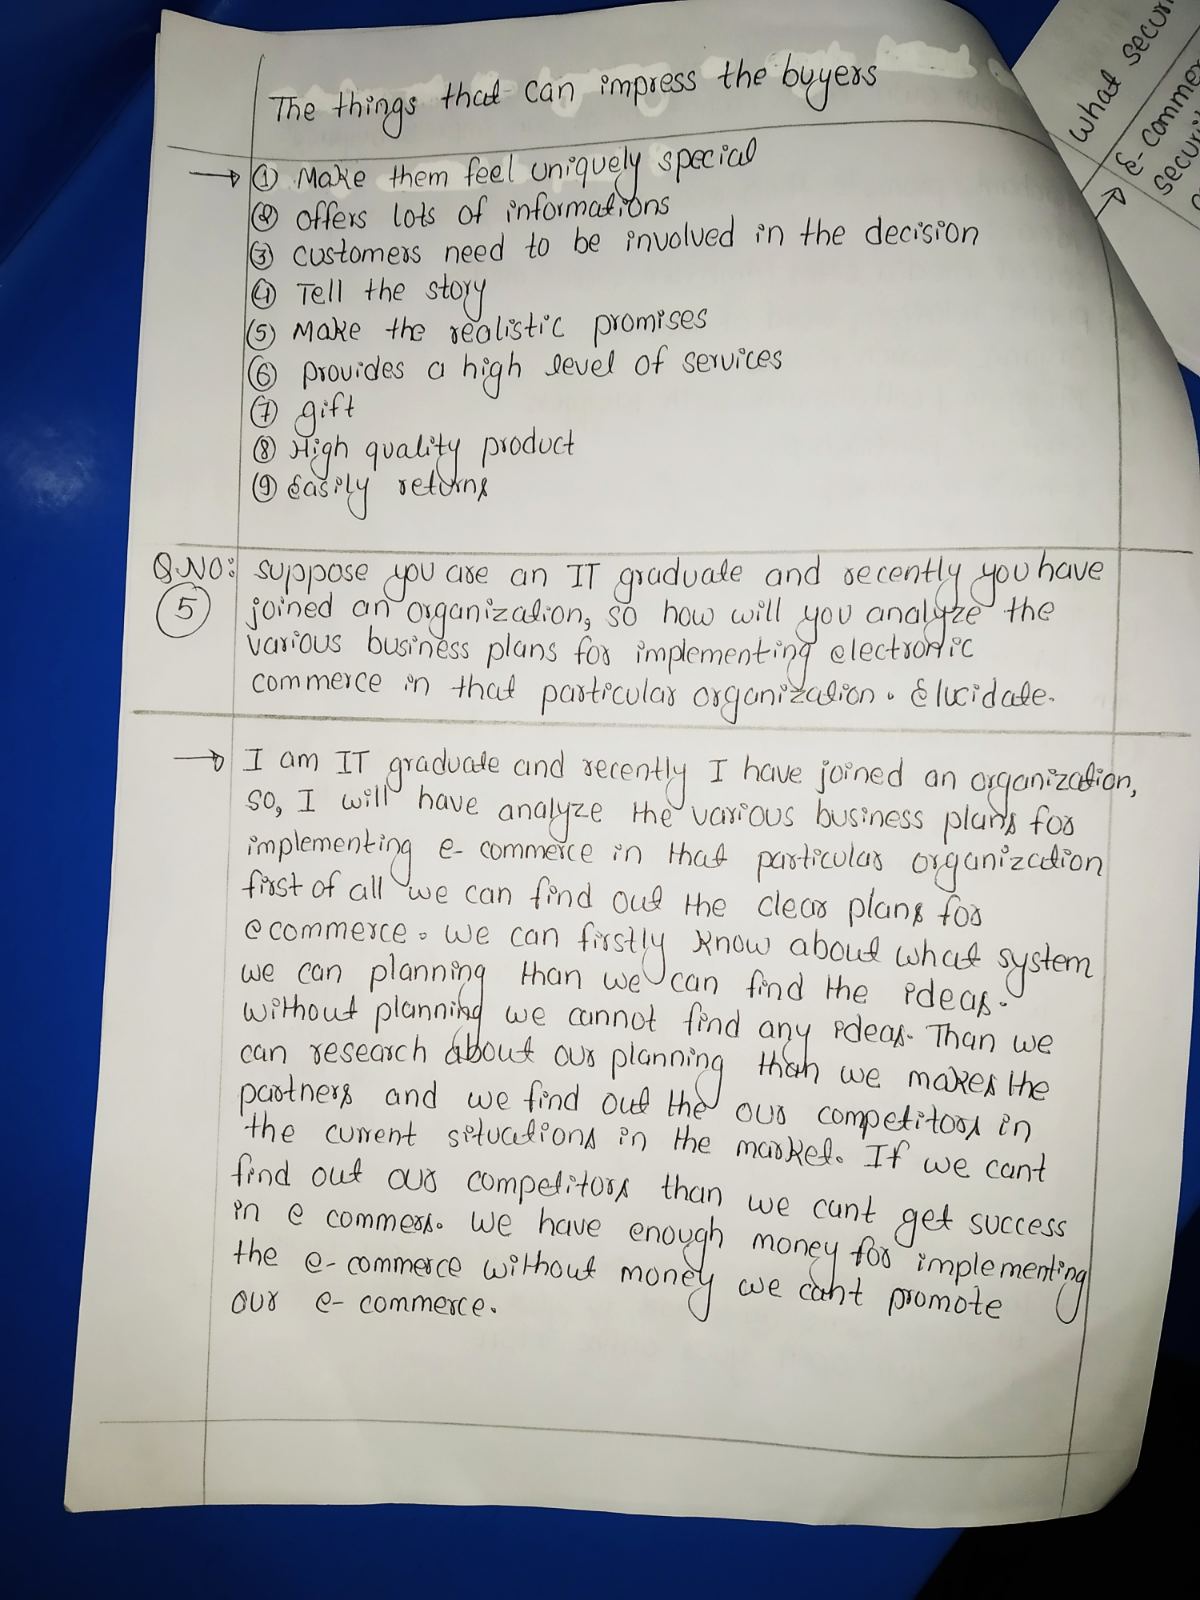 The things that can impress the buyers
→ ① Make them feel uniquely special
② offers lots of informations
③ customers need to be involved in the decision
④ Tell the story
⑤ Make the realistic promises
⑥ provides a high level of services
⑦ gift
⑧ High quality product
⑨ Easily returns
Q.NO: suppose you are an IT graduate and recently you have
⑤ joined an organization, so how will you analyze the
various business plans for implementing electronic
commerce in that particular organization. Elucidate.
→ I am IT graduate and recently I have joined an organization,
so, I will have analyze the various business plans for
implementing e-commerce in that particular organization
first of all we can find out the clear plans for
ecommerce. we can firstly know about what system
we can planning than we can find the ideas.
without planning we cannot find any ideas. Than we
can research about our planning than we makes the
partners and we find out the our competitors in
the current situations in the market. If we cant
find out our competitors than we cant get success
in e commers. We have enough money for implementing
the e-commerce without money we cant promote
our e-commerce.
What secur
E-commer
secur